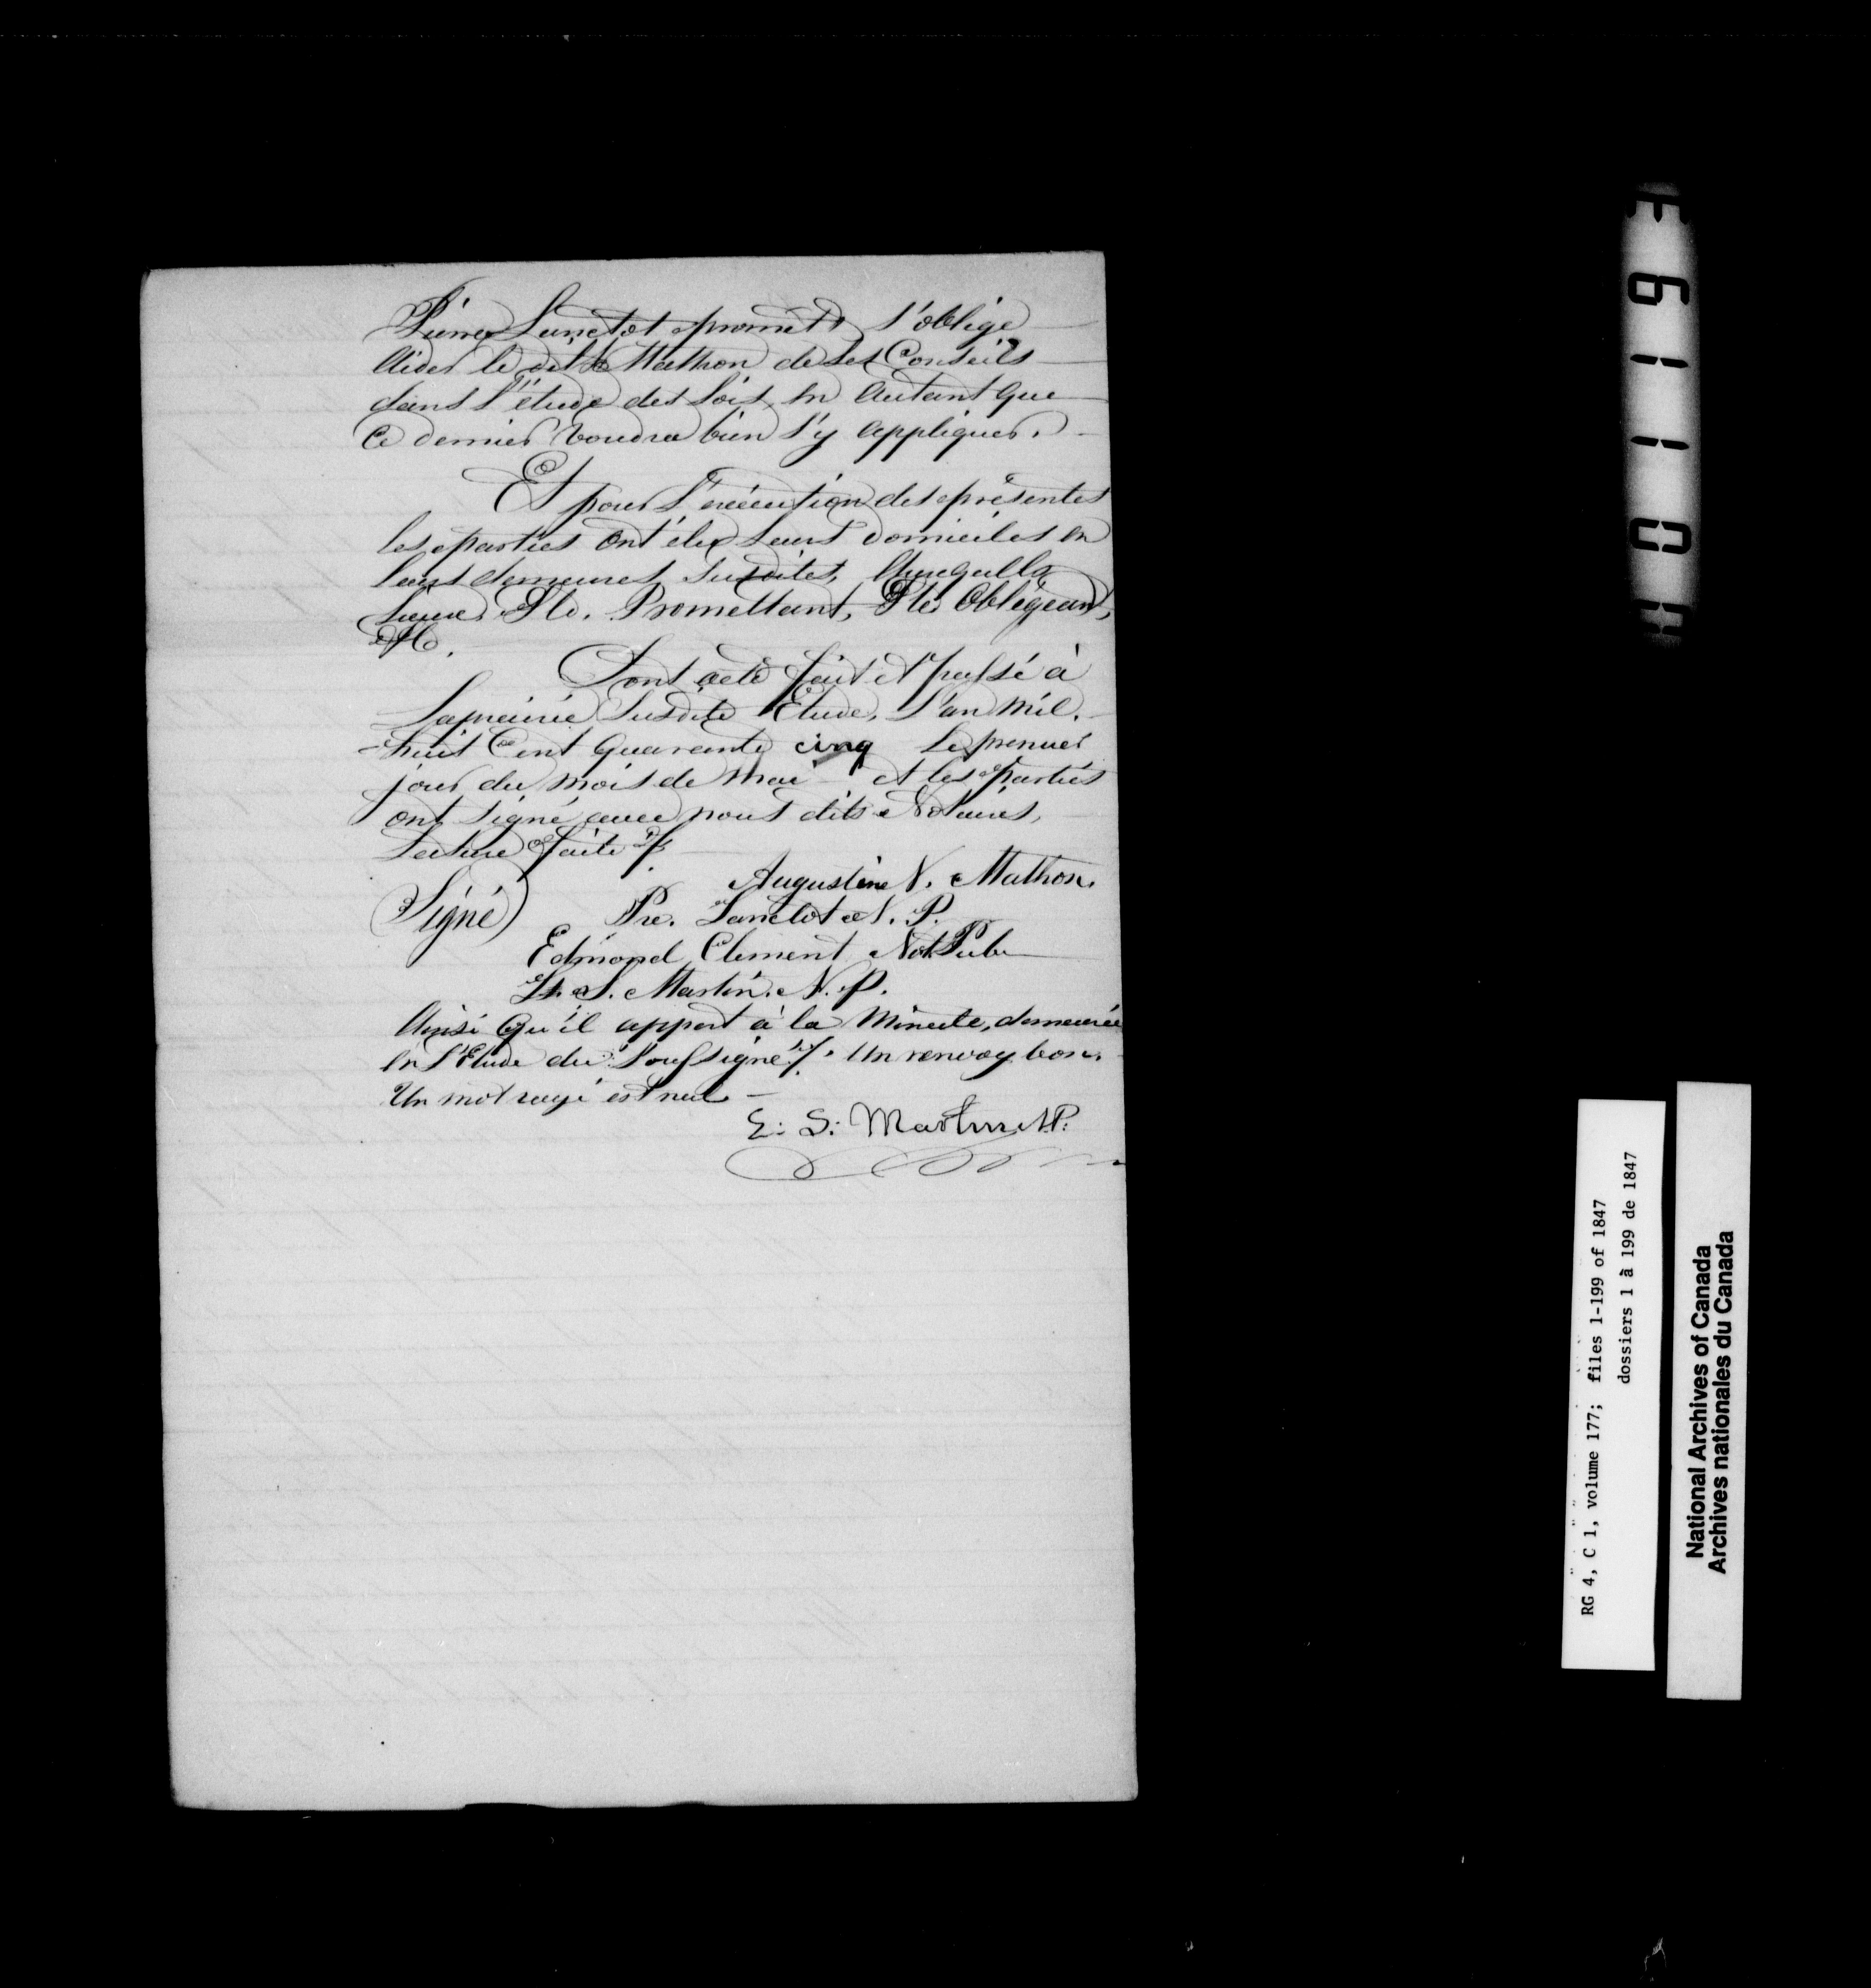 Pierre Lanctot promet & s'oblige
aider le dit Mathon de ses Conseils
dans l'étude des lois, en autant que
ce dernier voudra bien s'y appliquer.
Et pour l'exécution des présentes
les parties ont élu leurs domiciles en
leurs demeures susdites, Auxquells
lieux &c. Promettant, &c. Obligeant,
&c.
Dont acte fait et passé à
Laprairie susdite Etude, l'an mil
huit Cent quarante cinq le premier
jour du mois de mai et les parties
ont signé avec nous dits Notaires,
lecture faite
Signé) Augustine N. Mathon.
Pre. Lanctot N. P.
Edmond Clement Not Pub
L. S. Martin. N. P.
Ainsi qu'il appert à la Minute, demeurée
en l'Etude du Soussigné. Un renvoy bon.
Un mot rayé est nul
E: S: Martin N.P.
61101
RG 4, C 1, volume 177; files 1-199 of 1847
dossiers 1 à 199 de 1847
National Archives of Canada
Archives nationales du Canada